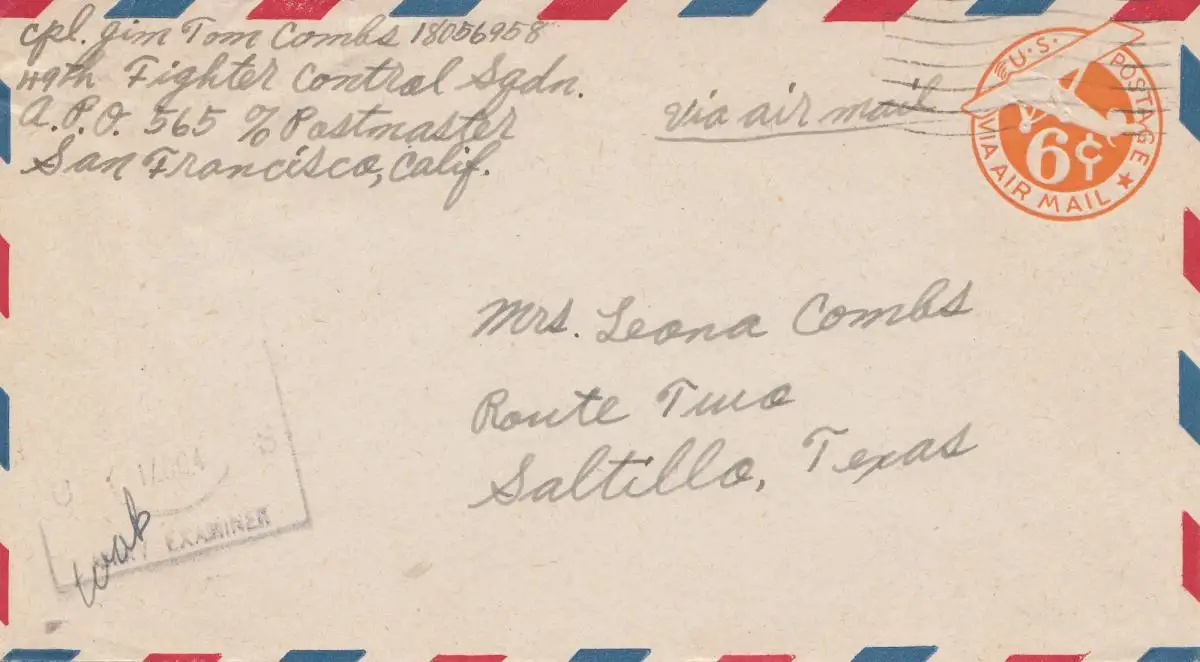 cpl. Jim Tom Combs 18056958
49th Fighter Control Sqdn.
A.P.O. 565 % Postmaster
San Francisco, Calif.
Via air mail
U.S. POSTAGE
6¢
VIA AIR MAIL
Mrs. Leona Combs
Route Two
Saltillo, Texas
EXAMINER